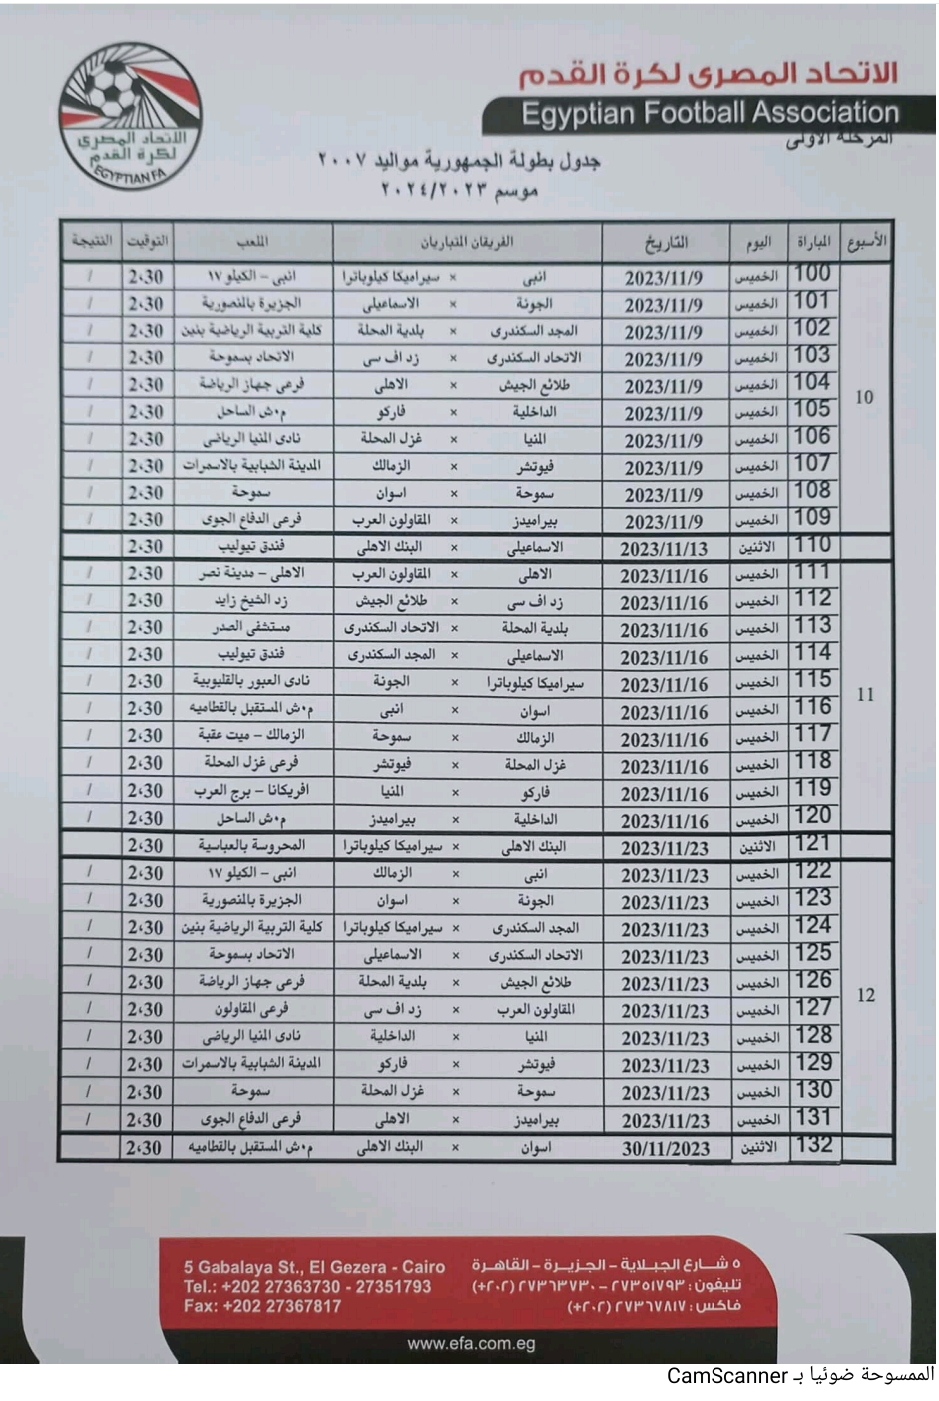 الاتحاد المصرى لكرة القدم
Egyptian Football Association
الاتحاد المصرى
لكرة القدم
EGYPTIAN FA
المرحلة الاولى
جدول بطولة الجمهورية مواليد ٢٠٠٧
موسم ٢٠٢٤/٢٠٢٣
الأسبوع المباراة اليوم التاريخ الفريقان المتباريان الملعب التوقيت النتيجة
10
100 الخميس 2023/11/9 انبى × سيراميكا كيلوباترا انبى – الكيلو ١٧ 2:30 /
101 الخميس 2023/11/9 الجونة × الاسماعيلى الجزيرة بالمنصورية 2:30 /
102 الخميس 2023/11/9 المجد السكندرى × بلدية المحلة كلية التربية الرياضية بنين 2:30 /
103 الخميس 2023/11/9 الاتحاد السكندرى × زد اف سى الاتحاد بسموحة 2:30 /
104 الخميس 2023/11/9 طلائع الجيش × الاهلى فرعى جهاز الرياضة 2:30 /
105 الخميس 2023/11/9 الداخلية × فاركو م٠ش الساحل 2:30 /
106 الخميس 2023/11/9 المنيا × غزل المحلة نادى المنيا الرياضى 2:30 /
107 الخميس 2023/11/9 فيوتشر × الزمالك المدينة الشبابية بالاسمرات 2:30 /
108 الخميس 2023/11/9 سموحة × اسوان سموحة 2:30 /
109 الخميس 2023/11/9 بيراميدز × المقاولون العرب فرعى الدفاع الجوى 2:30 /
110 الاثنين 2023/11/13 الاسماعيلى × البنك الاهلى فندق تيوليب 2:30
11
111 الخميس 2023/11/16 الاهلى × المقاولون العرب الاهلى – مدينة نصر 2:30 /
112 الخميس 2023/11/16 زد اف سى × طلائع الجيش زد الشيخ زايد 2:30 /
113 الخميس 2023/11/16 بلدية المحلة × الاتحاد السكندرى مستشفى الصدر 2:30 /
114 الخميس 2023/11/16 الاسماعيلى × المجد السكندرى فندق تيوليب 2:30 /
115 الخميس 2023/11/16 سيراميكا كيلوباترا × الجونة نادى العبور بالقليوبية 2:30 /
116 الخميس 2023/11/16 اسوان × انبى م٠ش المستقبل بالقطاميه 2:30 /
117 الخميس 2023/11/16 الزمالك × سموحة الزمالك – ميت عقبة 2:30 /
118 الخميس 2023/11/16 غزل المحلة × فيوتشر فرعى غزل المحلة 2:30 /
119 الخميس 2023/11/16 فاركو × المنيا افريكانا – برج العرب 2:30 /
120 الخميس 2023/11/16 الداخلية × بيراميدز م٠ش الساحل 2:30 /
121 الاثنين 2023/11/23 البنك الاهلى × سيراميكا كيلوباترا المحروسة بالعباسية 2:30
12
122 الخميس 2023/11/23 انبى × الزمالك انبى – الكيلو ١٧ 2:30 /
123 الخميس 2023/11/23 الجونة × اسوان الجزيرة بالمنصورية 2:30 /
124 الخميس 2023/11/23 المجد السكندرى × سيراميكا كيلوباترا كلية التربية الرياضية بنين 2:30 /
125 الخميس 2023/11/23 الاتحاد السكندرى × الاسماعيلى الاتحاد بسموحة 2:30 /
126 الخميس 2023/11/23 طلائع الجيش × بلدية المحلة فرعى جهاز الرياضة 2:30 /
127 الخميس 2023/11/23 المقاولون العرب × زد اف سى فرعى المقاولون 2:30 /
128 الخميس 2023/11/23 المنيا × الداخلية نادى المنيا الرياضى 2:30 /
129 الخميس 2023/11/23 فيوتشر × فاركو المدينة الشبابية بالاسمرات 2:30 /
130 الخميس 2023/11/23 سموحة × غزل المحلة سموحة 2:30 /
131 الخميس 2023/11/23 بيراميدز × الاهلى فرعى الدفاع الجوى 2:30 /
132 الاثنين 30/11/2023 اسوان × البنك الاهلى م٠ش المستقبل بالقطاميه 2:30
٥ شارع الجبلاية – الجزيرة – القاهرة
تليفون : ٢٧٣٥١٧٩٣ – ٢٧٣٦٣٧٣٠ (٢٠٢+)
فاكس : ٢٧٣٦٧٨١٧ (٢٠٢+)
5 Gabalaya St., El Gezera - Cairo
Tel.: +202 27363730 - 27351793
Fax: +202 27367817
www.efa.com.eg
الممسوحة ضوئيا بـ CamScanner